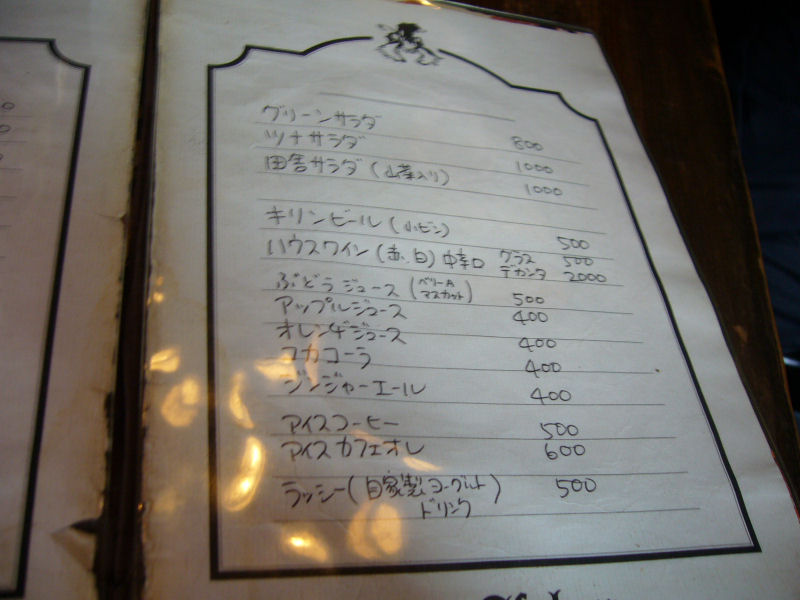 グリーンサラダ 800
ツナサラダ 1000
田舎サラダ(山菜入り) 1000
キリンビール(小ビン) 500
ハウスワイン(赤、白)中辛口 グラス 500
デカンタ 2000
ぶどうジュース(ベリーA マスカット) 500
アップルジュース 400
オレンヂジュース 400
コカコーラ 400
ジンジャーエール 400
アイスコーヒー 500
アイスカフェオレ 600
ラッシー(自家製ヨーグルト 500
ドリンク)